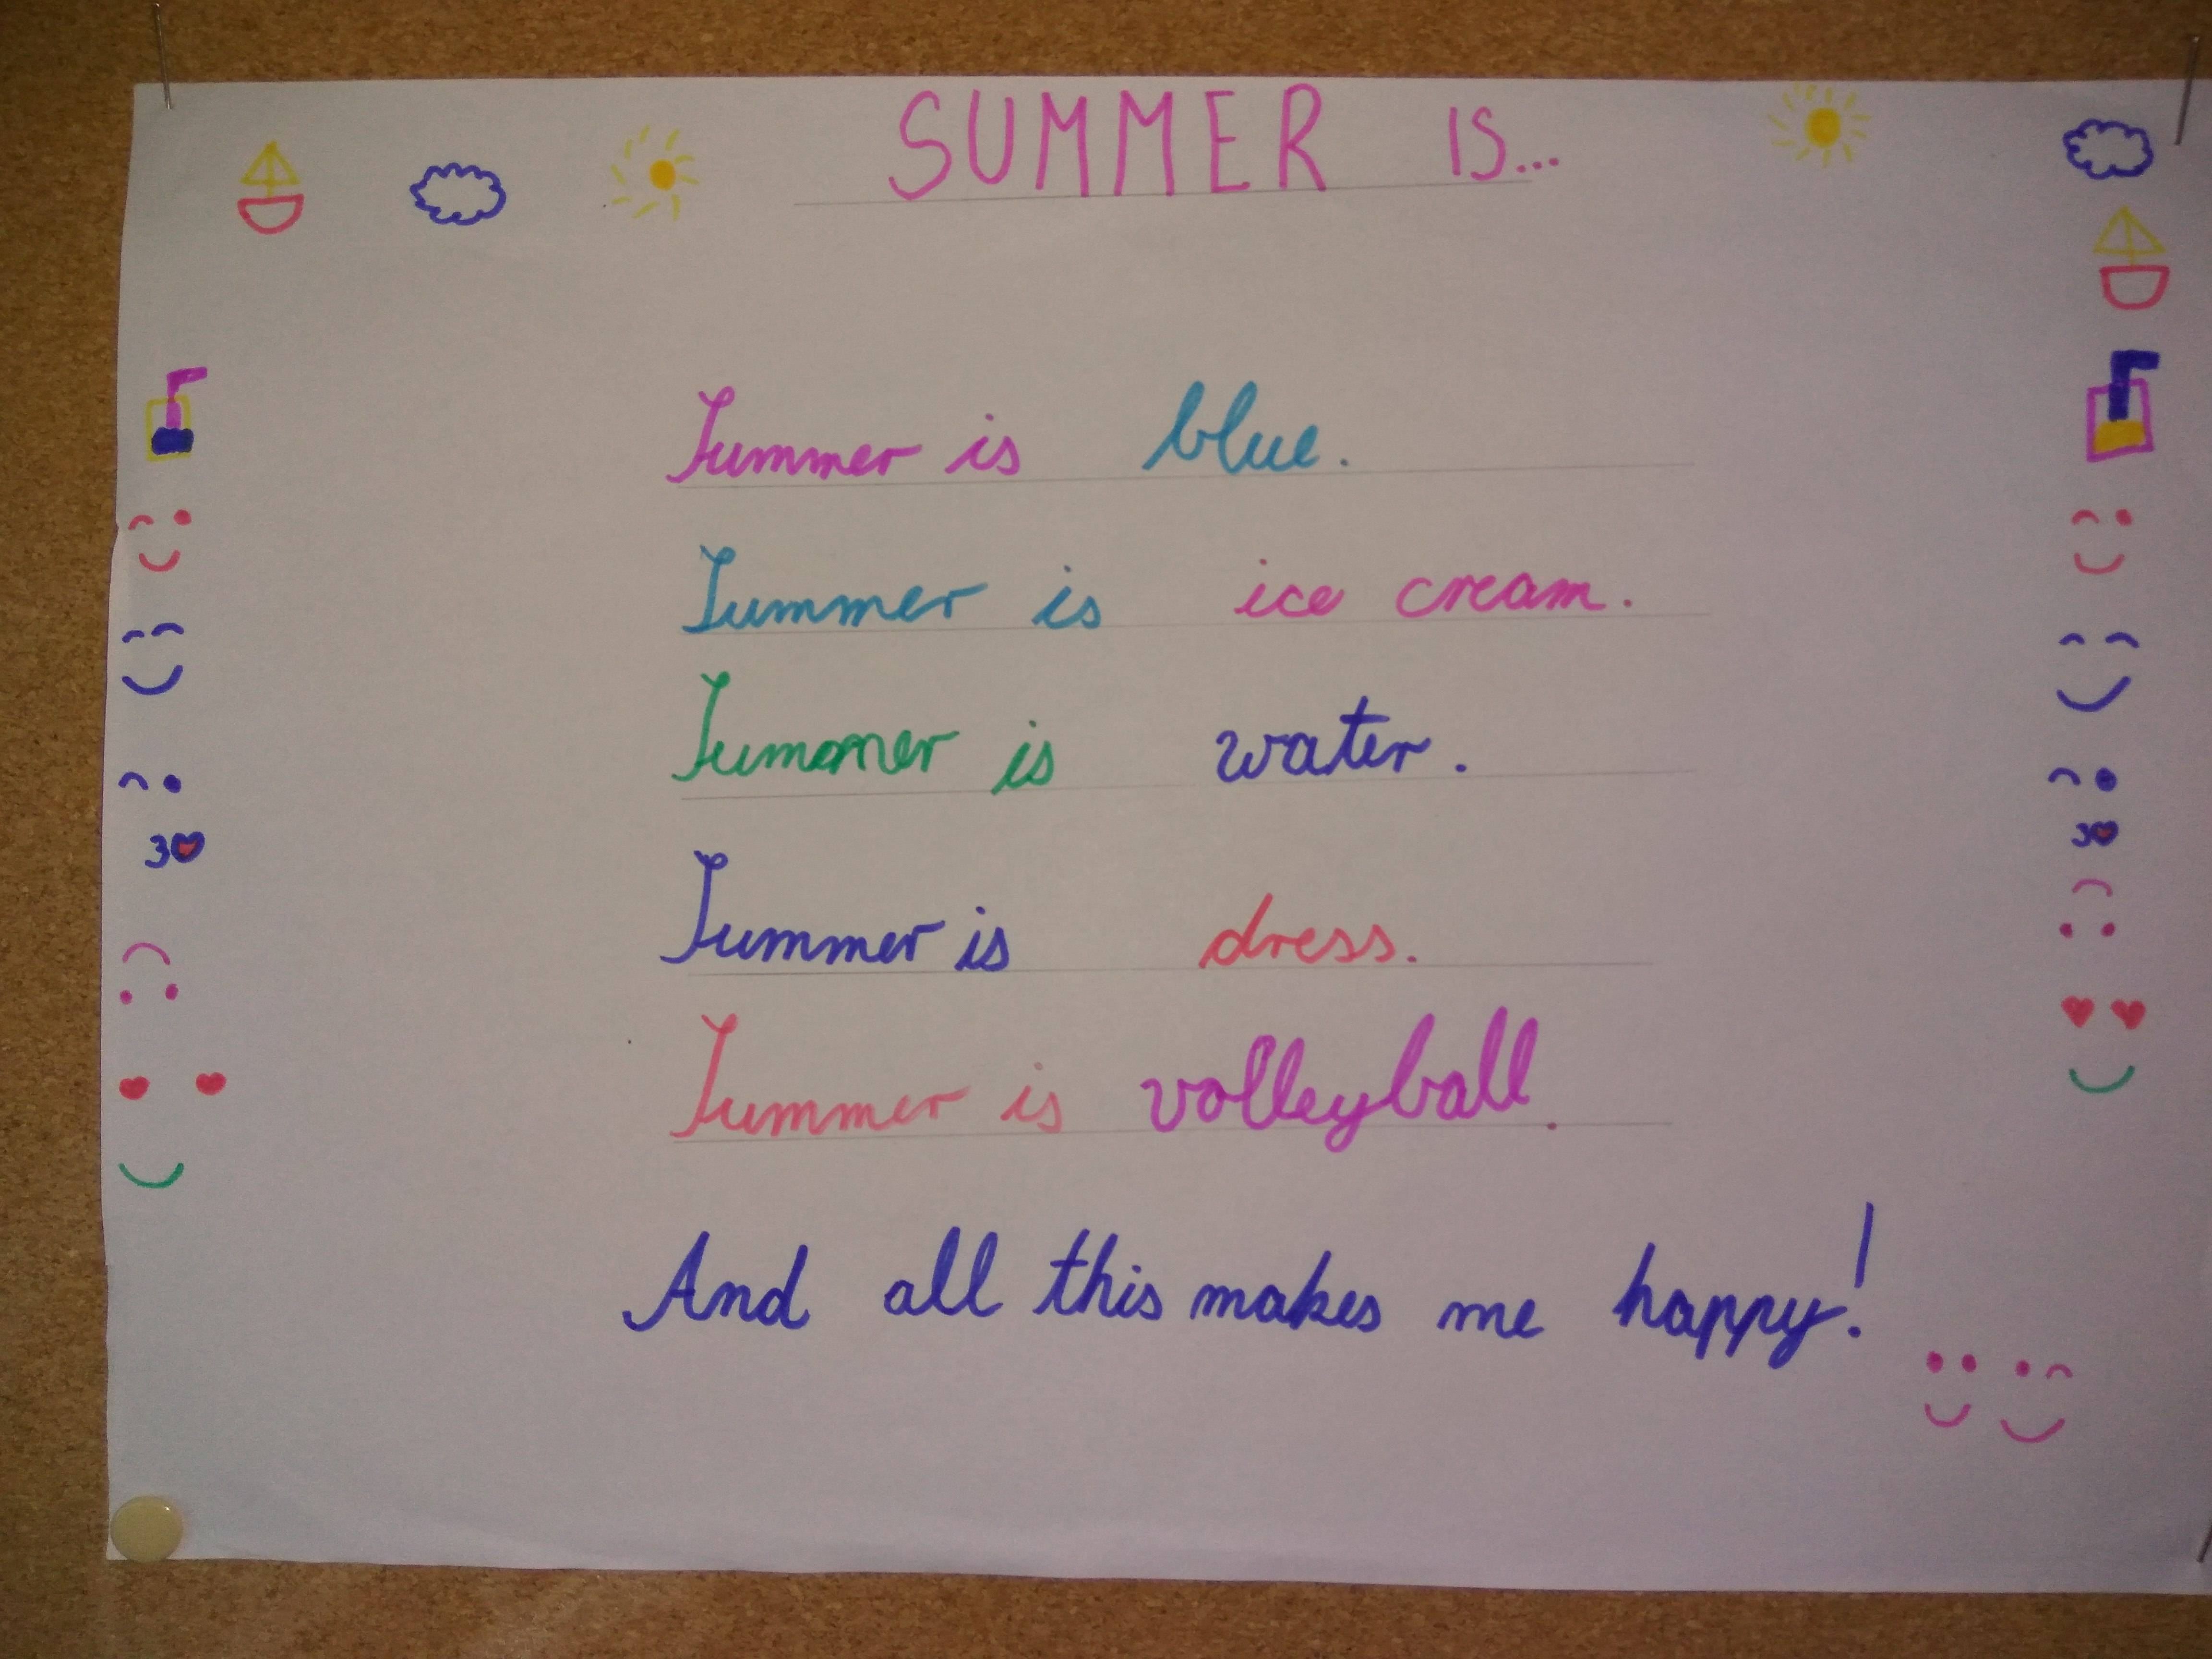 SUMMER IS...
Summer is blue.
Summer is ice cream.
Summer is water.
Summer is dress.
Summer is volleyball.
And all this makes me happy!